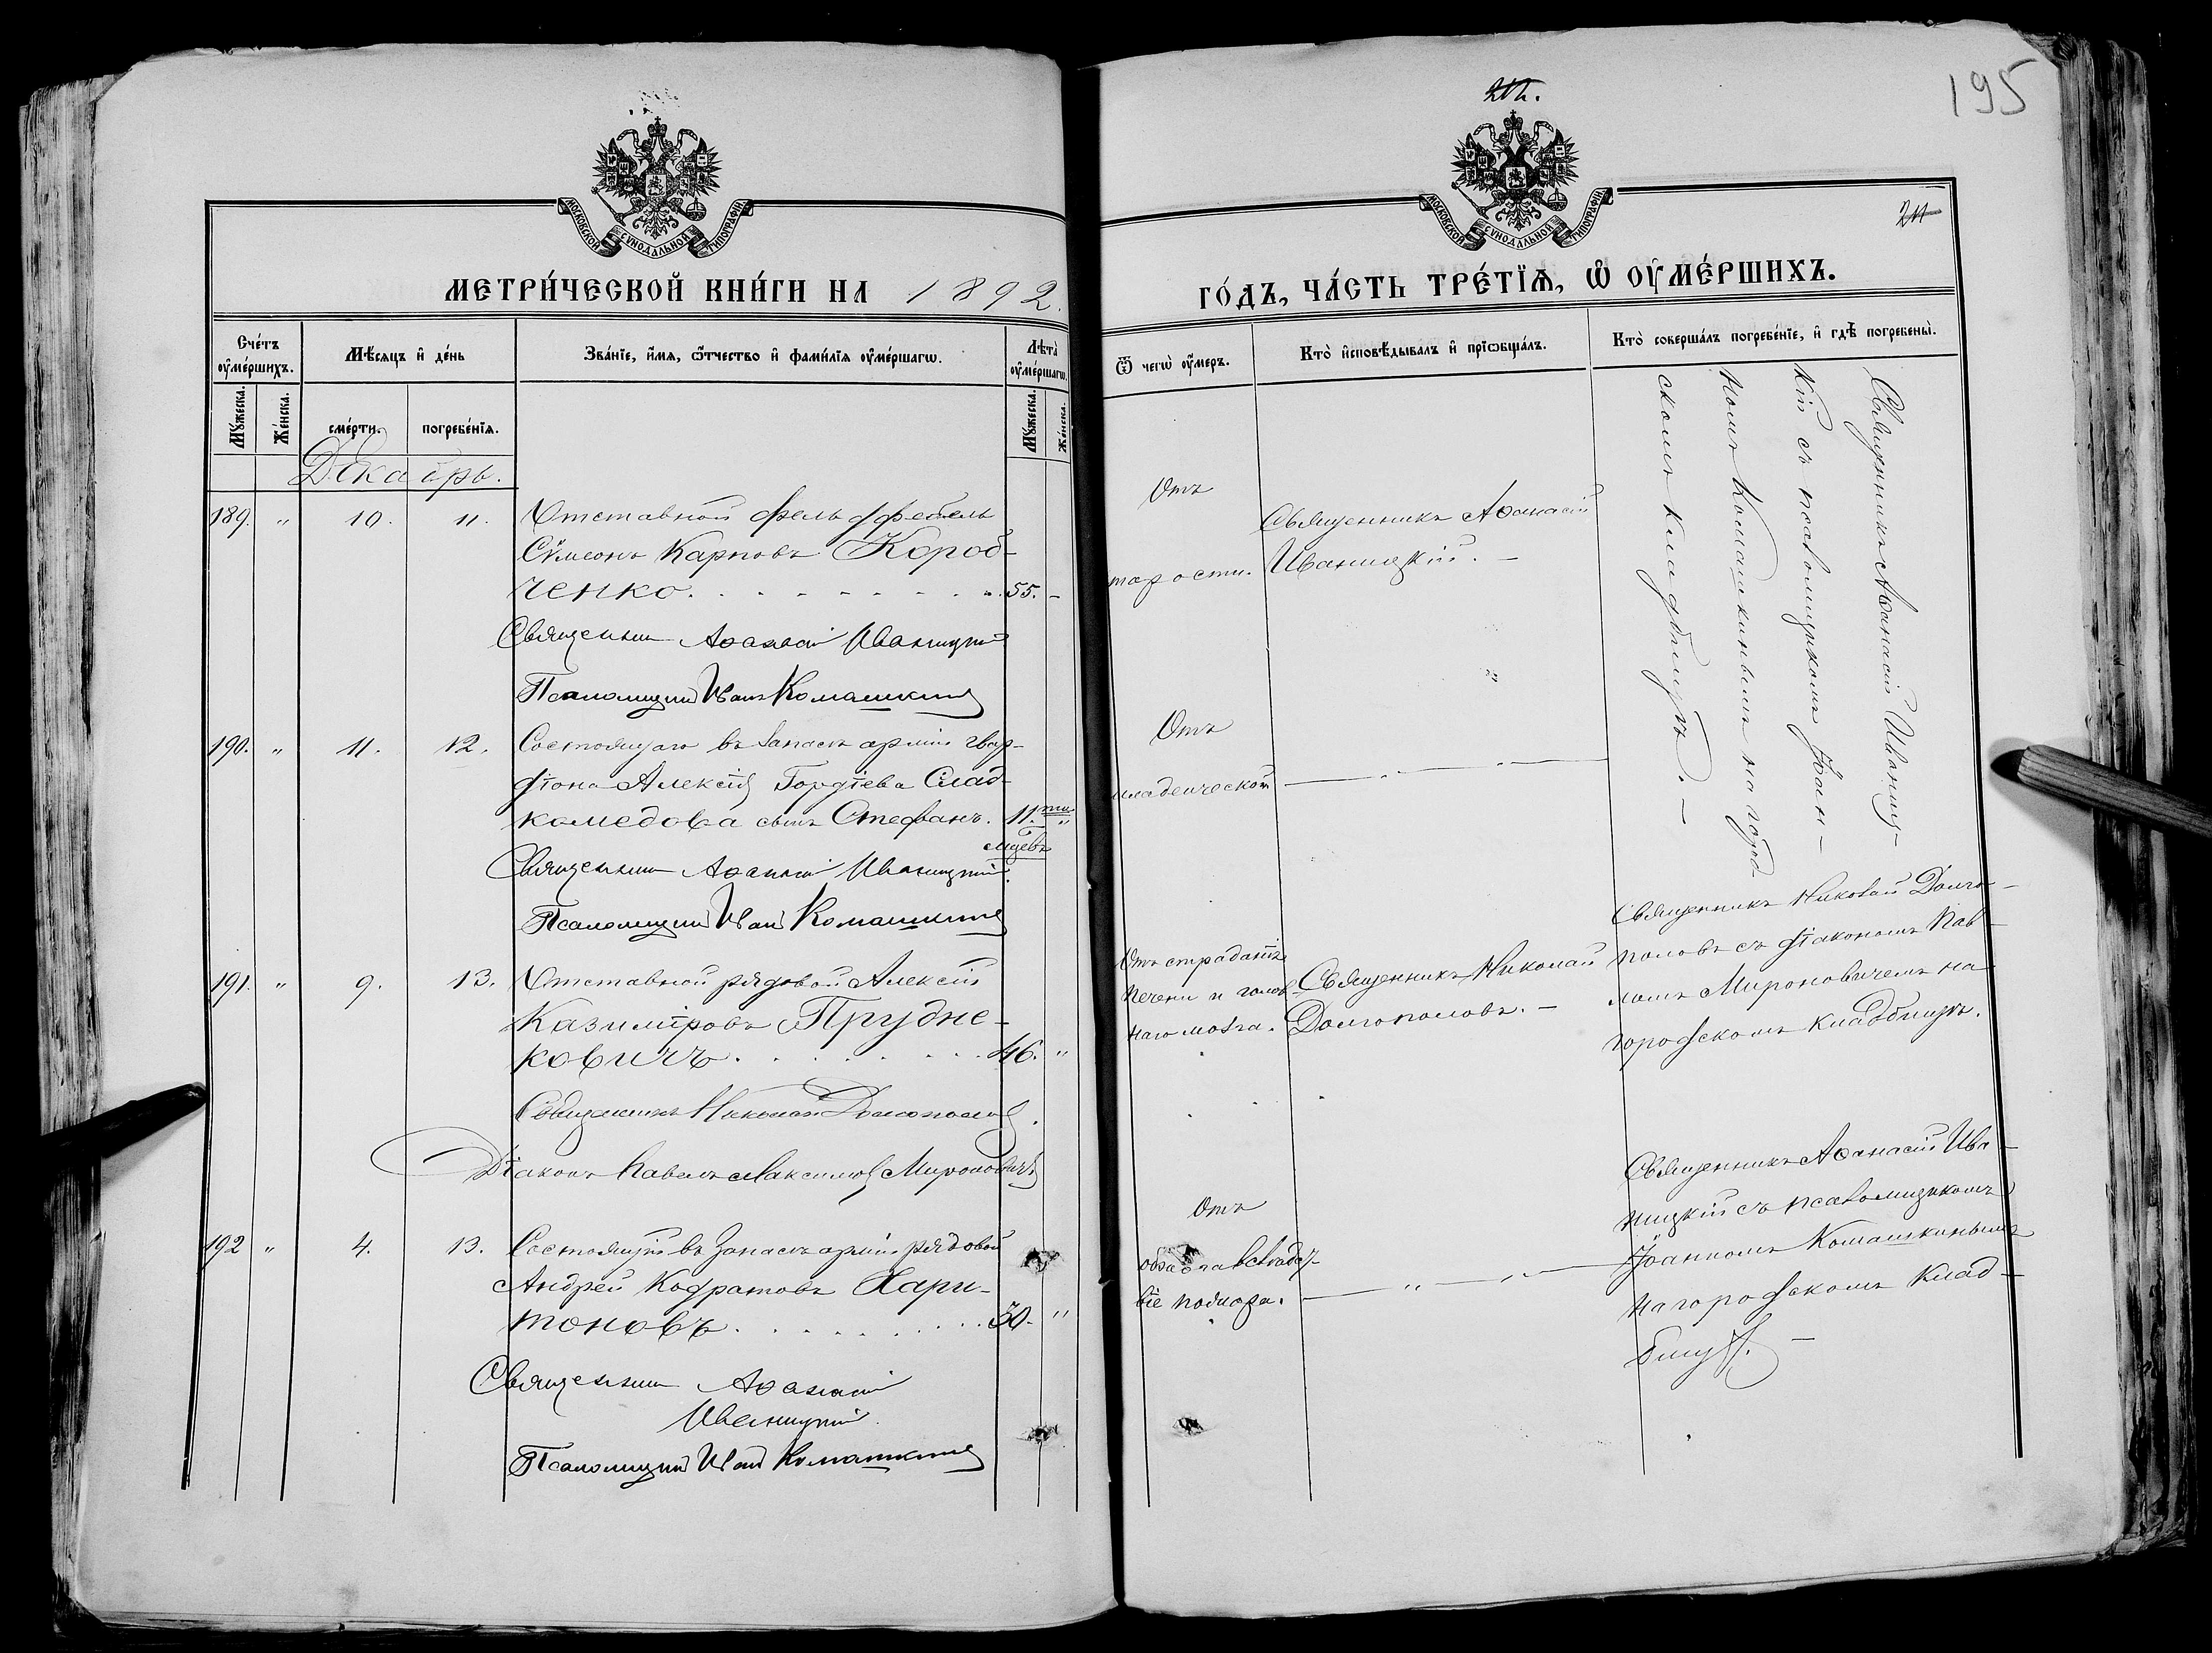 195
212.
211
МОСКОВСКОЙ СѴНОДАЛЬНОЙ ТИПОГРАФІИ
МОСКОВСКОЙ СѴНОДАЛЬНОЙ ТИПОГРАФІИ
МЕТРИ́ЧЕСКОЙ КНИ́ГИ НА 1892.
ГО́ДЪ, ЧА́СТЬ ТРЕ́ТІѦ, Ѡ҆ ОУ҆МЕ́РШИХЪ.
Сче́тъ оу҆ме́ршихъ.
Мѣ́сѧцъ и҆ де́нь
Зва́нїе, и҆́мѧ, ѿтчество и҆ фами́лїѧ оу҆ме́ршагѡ.
Лѣ́та оу҆ме́ршагѡ.
Мꙋ́жеска.
Же́нска.
сме́рти.
погребе́нїѧ.
Мꙋ́жеска.
Же́нска.
Ѿ чегѡ̀ оу҆́меръ.
Кто̀ и҆сповѣ́дывалъ и҆ прїѡбща́лъ.
Кто̀ соверша́лъ погребе́нїе, и҆ гдѣ̀ погребены̀.
Декабрь.
189. " 10. 11. Отставной фельдфебель
Сѵмеонъ Карповъ Короб-
ченко. 55. -
Священникъ Аѳанасій Иваницкій
Псаломщикъ Иванъ Комашкинъ
Отъ
старости.
Священникъ Аѳанасій
Иваницкій. -
Священникъ Аѳанасій Иваниц-
кій съ псаломщикомъ Іоан-
номъ Комашкинымъ на город-
скомъ кладбищѣ. -
190. " 11. 12. Состоящаго въ запасѣ арміи гвар-
діона Алексія Гордіева Слад-
комедова сынъ Стефанъ. 11.ти "
мцевъ
Священникъ Аѳанасій Иваницкій.
Псаломщикъ Иванъ Комашкинъ
Отъ
младенческой
191. " 9. 13. Отставной рядовой Алексій
Казиміровъ Прудне-
ковичъ. 46. "
Священникъ Николай Долгополовъ.
Діаконъ Павелъ Максимовъ Мироновичъ
Отъ страданія
печени и голов-
наго мозга.
Священникъ Николай
Долгополовъ. -
Священникъ Николай Долго-
половъ съ діакономъ Пав-
ломъ Мироновичемъ на
городскомъ кладбищѣ.
192 " 4. 13. Состоящій въ запасѣ арміи рядовой
Андрей Кодратовъ Хари-
тоновъ. 30. "
Священникъ Аѳанасій
Иваницкій.
Псаломщикъ Иванъ Комашкинъ
Отъ
Священникъ Аѳанасій Ива-
ницкій съ псаломщикомъ
Іоанномъ Комашкинымъ
на городскомъ клад-
бищѣ. -